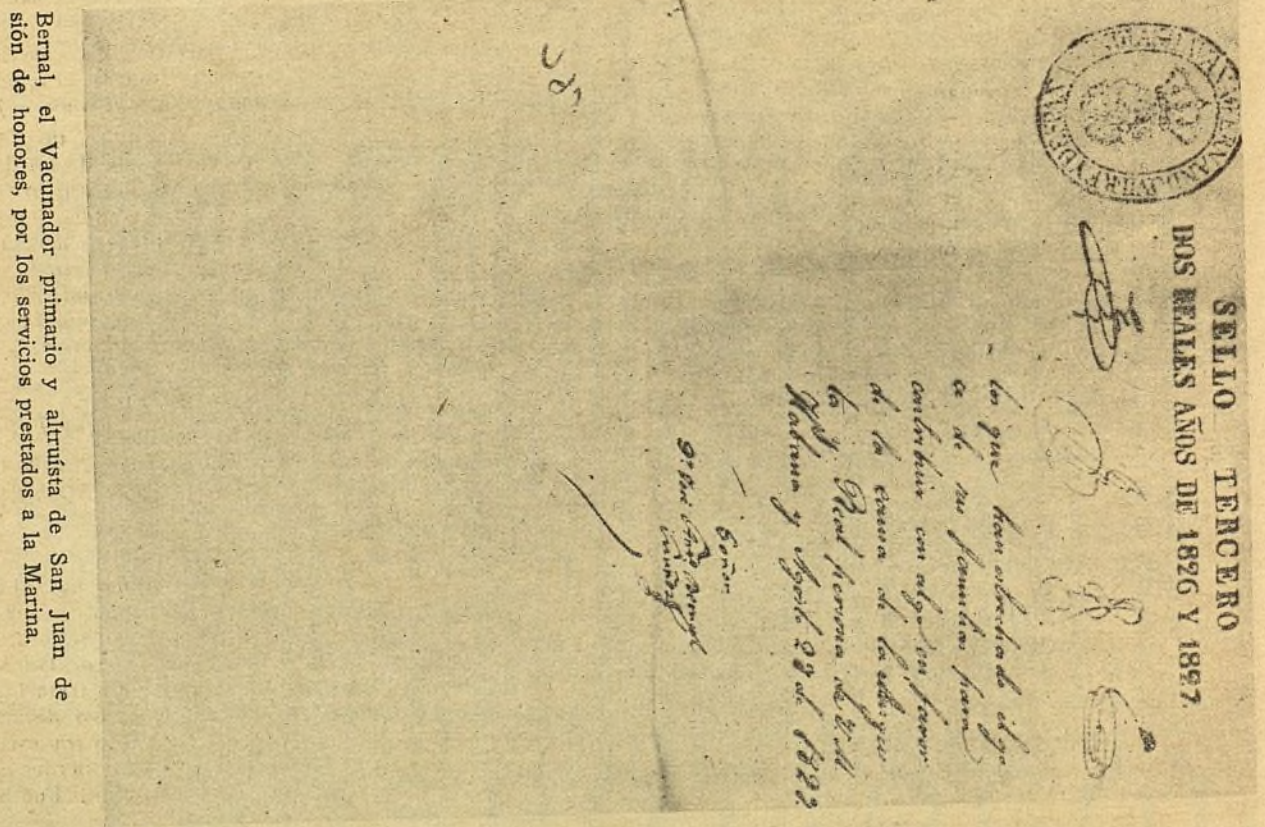 SELLO TERCERO
DOS REALES AÑOS DE 1826 Y 1827.
los que han estrechado el go
ce de sus familias para
contribuir con algo en favor
de la causa de la
la Rl. Real persona de V. M.
Habana y Agosto 29 de 1827.
Señor
Dr. José Anto. Bernal
Bernal, el Vacunador primario y altruísta de San Juan de
sión de honores, por los servicios prestados a la Marina.